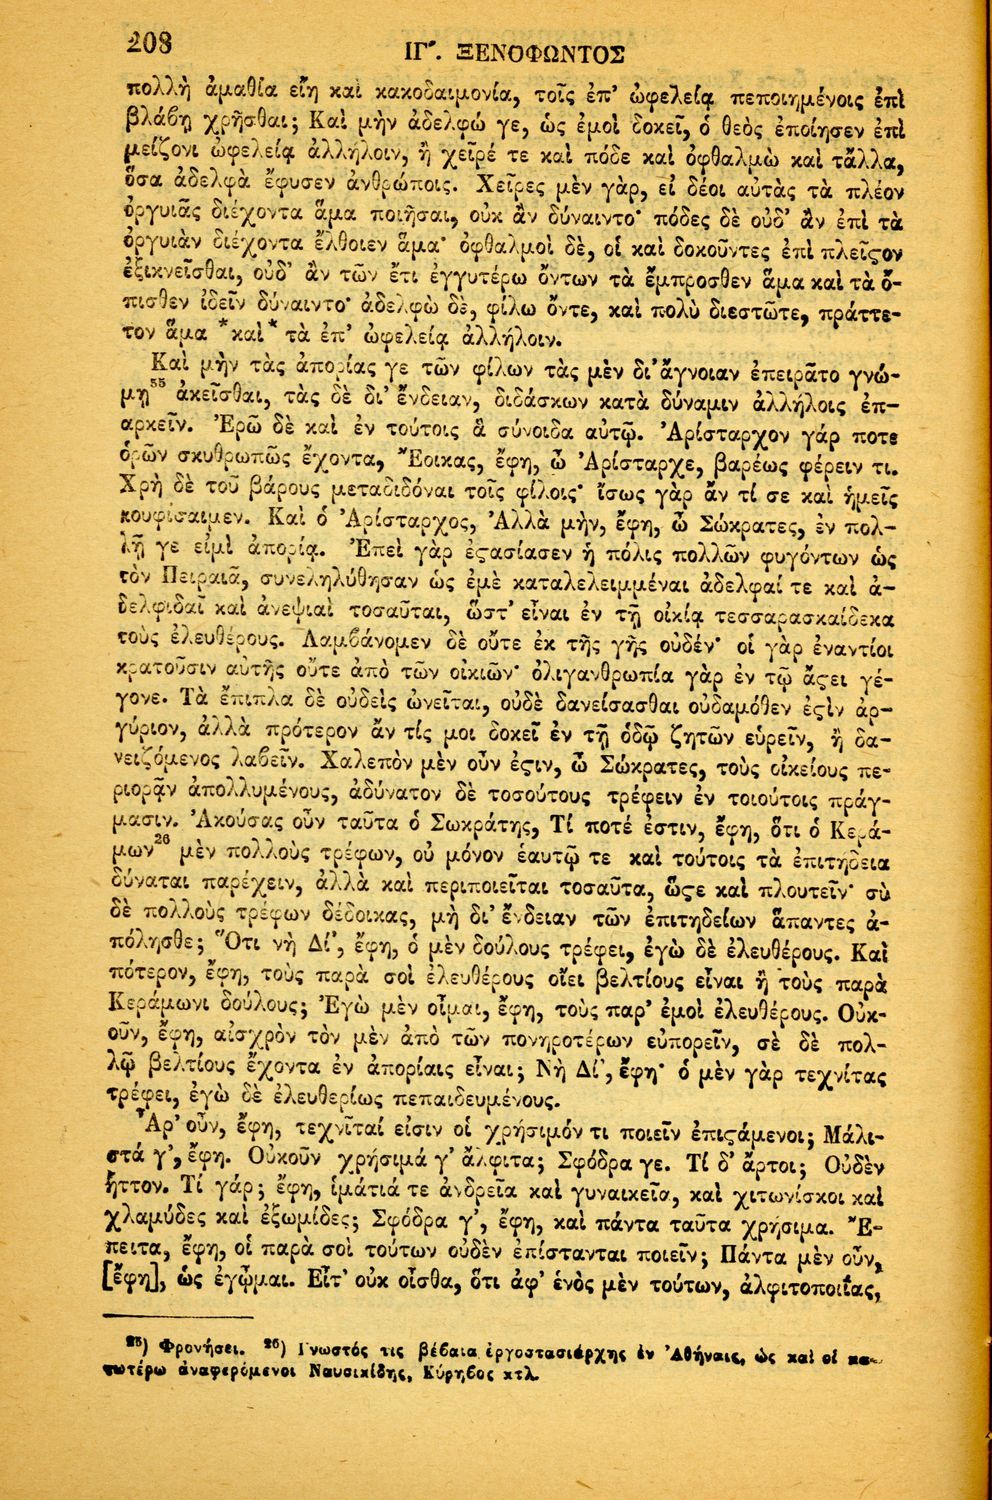 208
ΙΓ'. ΞΕΝΟΦΩΝΤΟΣ
πολλὴ ἀμαθία εἴη καὶ κακοδαιμονία, τοῖς ἐπ' ὠφελείᾳ πεποιημένοις ἐπὶ
βλάβῃ χρῆσθαι; Καὶ μὴν ἀδελφώ γε, ὡς ἐμοὶ δοκεῖ, ὁ θεὸς ἐποίησεν ἐπὶ
μείζονι ὠφελείᾳ ἀλλήλοιν, ἢ χεῖρέ τε καὶ πόδε καὶ ὀφθαλμὼ καὶ τἄλλα,
ὅσα ἀδελφὰ ἔφυσεν ἀνθρώποις. Χεῖρες μὲν γὰρ, εἰ δέοι αὐτὰς τὰ πλέον
ὀργυιᾶς διέχοντα ἅμα ποιῆσαι, οὐκ ἂν δύναιντο· πόδες δὲ οὐδ' ἂν ἐπὶ τὰ
ὀργυιὰν διέχοντα ἔλθοιεν ἅμα· ὀφθαλμοὶ δὲ, οἱ καὶ δοκοῦντες ἐπὶ πλεῖϛον
ἐξικνεῖσθαι, οὐδ' ἂν τῶν ἔτι ἐγγυτέρω ὄντων τὰ ἔμπροσθεν ἅμα καὶ τὰ ὄ-
πισθεν ἰδεῖν δύναιντο· ἀδελφὼ δὲ, φίλω ὄντε, καὶ πολὺ διεστῶτε, πράττε-
τον ἅμα *καὶ* τὰ ἐπ' ὠφελείᾳ ἀλλήλοιν.
Καὶ μὴν τὰς ἀπορίας γε τῶν φίλων τὰς μὲν δι' ἄγνοιαν ἐπειρᾶτο γνώ-
μῃ²⁵ ἀκεῖσθαι, τὰς δὲ δι' ἔνδειαν, διδάσκων κατὰ δύναμιν ἀλλήλοις ἐπ-
αρκεῖν. Ἐρῶ δὲ καὶ ἐν τούτοις ἃ σύνοιδα αὐτῷ. Ἀρίσταρχον γάρ ποτε
ὁρῶν σκυθρωπῶς ἔχοντα, Ἔοικας, ἔφη, ὦ Ἀρίσταρχε, βαρέως φέρειν τι.
Χρὴ δὲ τοῦ βάρους μεταδιδόναι τοῖς φίλοις· ἴσως γὰρ ἄν τί σε καὶ ἡμεῖς
κουφίσαιμεν. Καὶ ὁ Ἀρίσταρχος, Ἀλλὰ μὴν, ἔφη, ὦ Σώκρατες, ἐν πολ-
λῇ γε εἰμὶ ἀπορίᾳ. Ἐπεὶ γὰρ ἐϛασίασεν ἡ πόλις πολλῶν φυγόντων ὡς
τὸν Πειραιᾶ, συνεληλύθησαν ὡς ἐμὲ καταλελειμμέναι ἀδελφαί τε καὶ ἀ-
δελφιδαῖ καὶ ἀνεψιαὶ τοσαῦται, ὥστ' εἶναι ἐν τῇ οἰκίᾳ τεσσαρασκαίδεκα
τοὺς ἐλευθέρους. Λαμβάνομεν δὲ οὔτε ἐκ τῆς γῆς οὐδέν· οἱ γὰρ ἐναντίοι
κρατοῦσιν αὐτῆς οὔτε ἀπὸ τῶν οἰκιῶν· ὀλιγανθρωπία γὰρ ἐν τῷ ἄϛει γέ-
γονε. Τὰ ἔπιπλα δὲ οὐδεὶς ὠνεῖται, οὐδὲ δανείσασθαι οὐδαμόθεν ἐϛὶν ἀρ-
γύριον, ἀλλὰ πρότερον ἄν τίς μοι δοκεῖ ἐν τῇ ὁδῷ ζητῶν εὑρεῖν, ἢ δα-
νειζόμενος λαβεῖν. Χαλεπὸν μὲν οὖν ἐϛιν, ὦ Σώκρατες, τοὺς οἰκείους πε-
ριορᾷν ἀπολλυμένους, ἀδύνατον δὲ τοσούτους τρέφειν ἐν τοιούτοις πράγ-
μασιν. Ἀκούσας οὖν ταῦτα ὁ Σωκράτης, Τί ποτέ ἐστιν, ἔφη, ὅτι ὁ Κερά-
μων²⁶ μὲν πολλοὺς τρέφων, οὐ μόνον ἑαυτῷ τε καὶ τούτοις τὰ ἐπιτήδεια
δύναται παρέχειν, ἀλλὰ καὶ περιποιεῖται τοσαῦτα, ὥϛε καὶ πλουτεῖν· σὺ
δὲ πολλοὺς τρέφων δέδοικας, μὴ δι' ἔνδειαν τῶν ἐπιτηδείων ἅπαντες ἀ-
πόλησθε; Ὅτι νὴ Δί', ἔφη, ὁ μὲν δούλους τρέφει, ἐγὼ δὲ ἐλευθέρους. Καὶ
πότερον, ἔφη, τοὺς παρὰ σοὶ ἐλευθέρους οἴει βελτίους εἶναι ἢ τοὺς παρὰ
Κεράμωνι δούλους; Ἐγὼ μὲν οἶμαι, ἔφη, τοὺς παρ' ἐμοὶ ἐλευθέρους. Οὐκ-
οῦν, ἔφη, αἰσχρὸν τὸν μὲν ἀπὸ τῶν πονηροτέρων εὐπορεῖν, σὲ δὲ πολ-
λῷ βελτίους ἔχοντα ἐν ἀπορίαις εἶναι; Νὴ Δί', ἔφη· ὁ μὲν γὰρ τεχνίτας
τρέφει, ἐγὼ δὲ ἐλευθερίως πεπαιδευμένους.
Ἆρ' οὖν, ἔφη, τεχνῖταί εἰσιν οἱ χρήσιμόν τι ποιεῖν ἐπιϛάμενοι; Μάλι-
στά γ', ἔφη. Οὐκοῦν χρήσιμά γ' ἄλφιτα; Σφόδρα γε. Τί δ' ἄρτοι; Οὐδὲν
ἧττον. Τί γάρ; ἔφη, ἱμάτιά τε ἀνδρεῖα καὶ γυναικεῖα, καὶ χιτωνίσκοι καὶ
χλαμύδες καὶ ἐξωμίδες; Σφόδρα γ', ἔφη, καὶ πάντα ταῦτα χρήσιμα. Ἔ-
πειτα, ἔφη, οἱ παρὰ σοὶ τούτων οὐδὲν ἐπίστανται ποιεῖν; Πάντα μὲν οὖν,
[ἔφη], ὡς ἐγᾦμαι. Εἶτ' οὐκ οἶσθα, ὅτι ἀφ' ἑνὸς μὲν τούτων, ἀλφιτοποιΐας,
²⁵) Φρονήσει. ²⁶) Γνωστός τις βέβαια ἐργοστασιάρχης ἐν Ἀθήναις, ὡς καὶ οἱ κα-
τωτέρω ἀναφερόμενοι Ναυσικίδης, Κύρηβος κτλ.